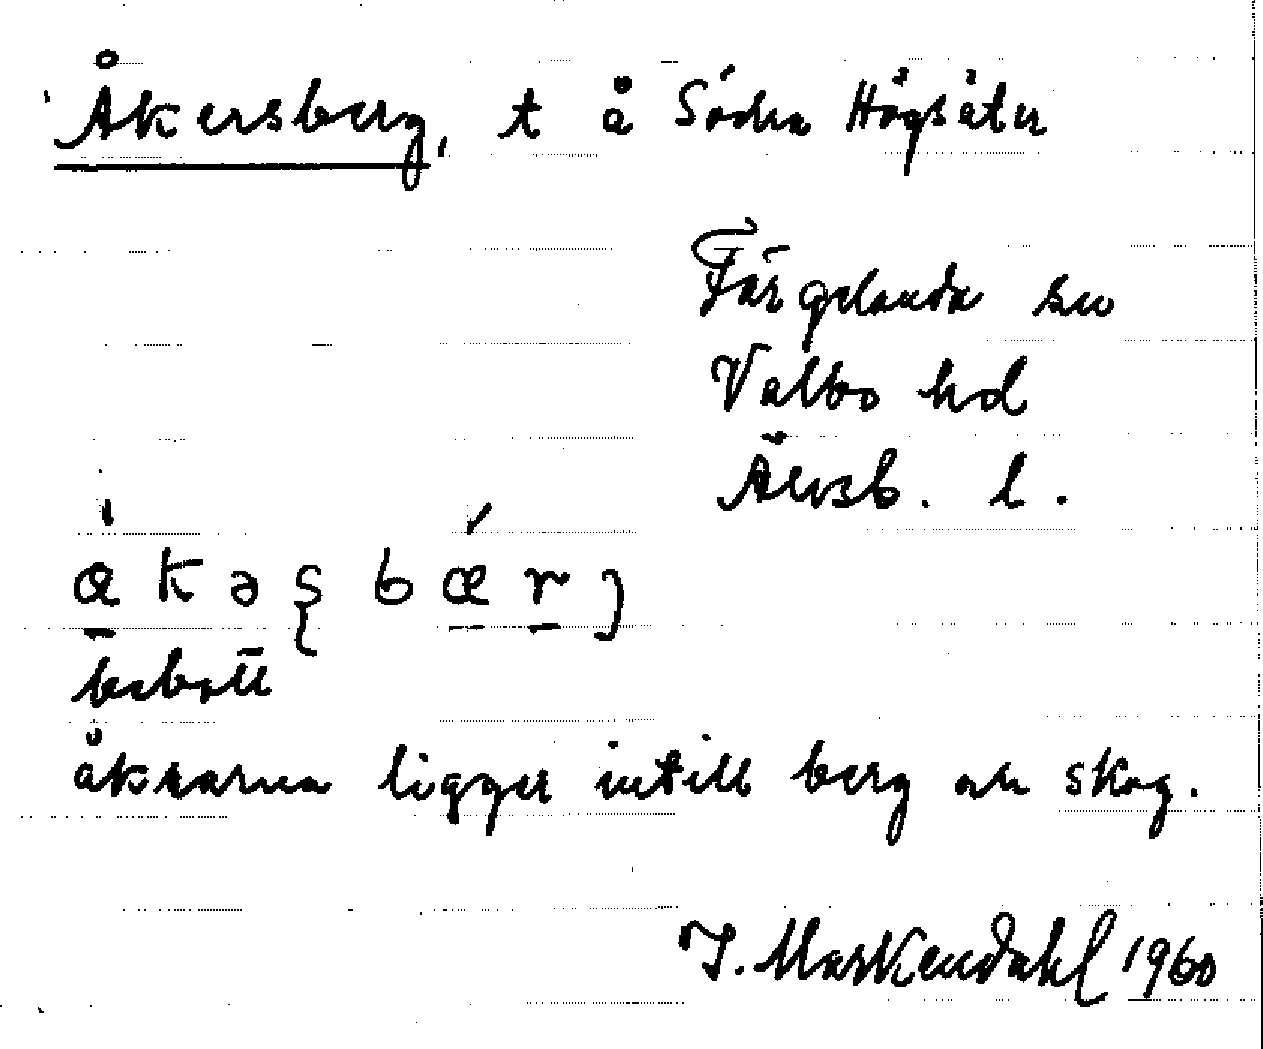 Åkersberg, t å Södra Högsäter
Färgelanda sn
Valbo hd
Älvsb. l.
bebott
åkrarna ligger intill berg och skog.
I. Markendahl 1960